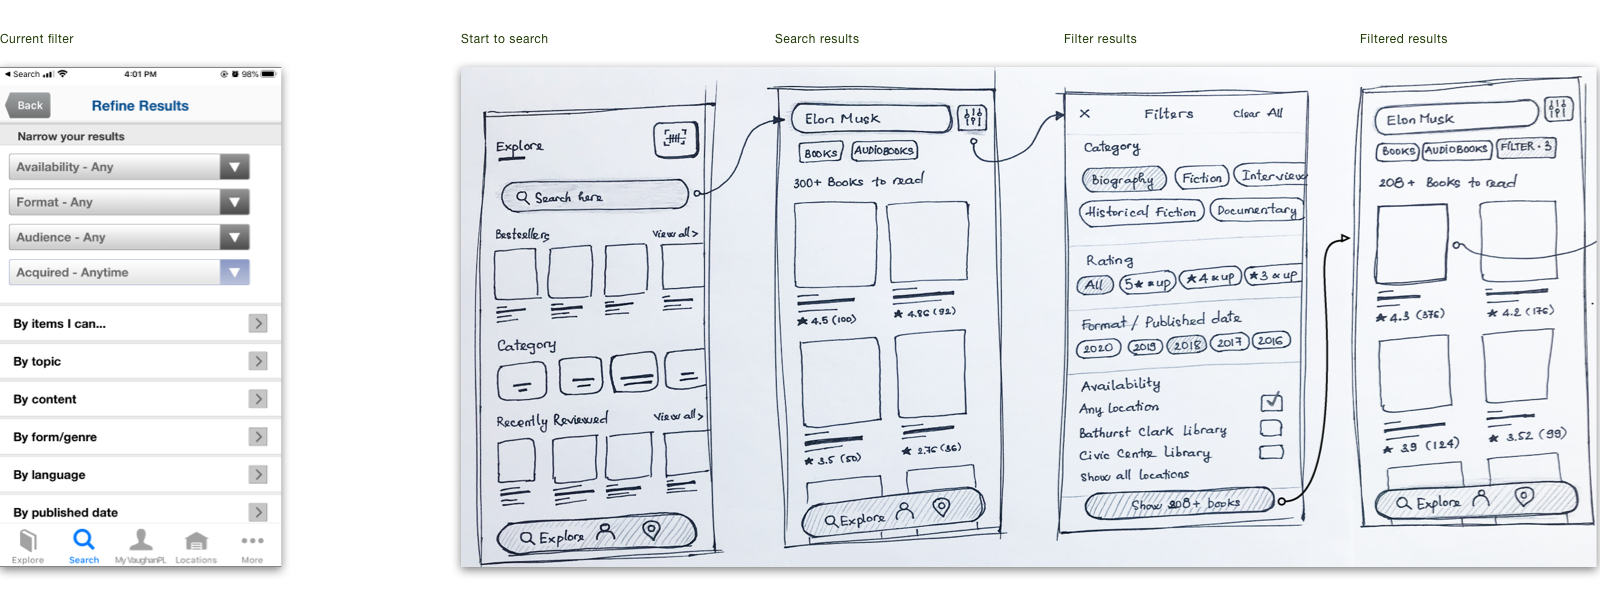 Current filter
Start to search
Search results
Filter results
Filtered results
Search
4:01 PM
98%
Back
Refine Results
Narrow your results
Availability - Any
Format - Any
Audience - Any
Acquired - Anytime
By items I can...
By topic
By content
By form/genre
By language
By published date
Explore
Search
My VaughanPL
Locations
More
Explore
Search here
Bestsellers
View all >
Category
Recently Reviewed
View all >
Explore
Elon Musk
BOOKS
AUDIOBOOKS
300+ Books to read
★ 4.5 (100)
★ 4.86 (92)
★ 3.5 (50)
★ 2.76 (36)
Explore
× Filters Clear All
Category
Biography
Fiction
Interview
Historical Fiction
Documentary
Rating
All
5★ & up
★ 4 & up
★ 3 & up
Format / Published date
2020
2019
2018
2017
2016
Availability
Any Location
Bathurst Clark Library
Civic Centre Library
Show all locations
Show 208+ books
Elon Musk
BOOKS
AUDIOBOOKS
FILTER · 3
208+ Books to read
★ 4.3 (376)
★ 4.2 (176)
★ 3.9 (124)
★ 3.52 (99)
Explore